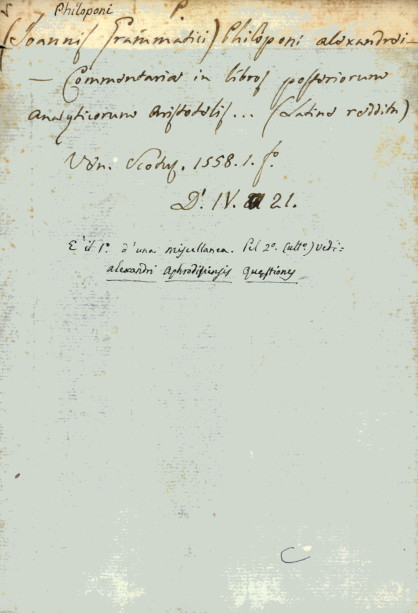 Philoponi
P
(Joannis Grammatici) Philoponi alexandrei
— Commentaria in libros posteriorum
analyticorum Aristotelis... (Latine reddita)
Ven. Scotus. 1558. 1. fº.
D'. IV. 21.
E' il 1º. d'una miscellanea. Pel 2º. (ultº.) vedi:
alexandri Aphrodisiensis Quæstiones